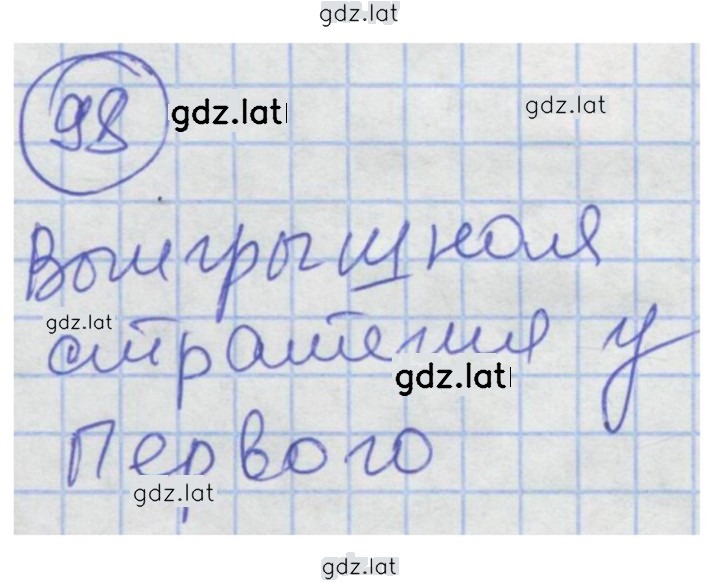 gdz.lat
98 gdz.lat gdz.lat
Выигрышная
gdz.lat
стратегия у
gdz.lat
первого
gdz.lat
gdz.lat